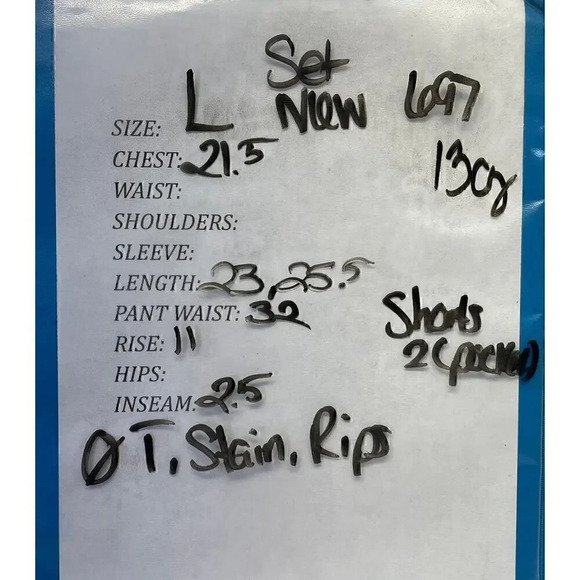 Set
SIZE: L New 697
CHEST: 21.5 13oz
WAIST:
SHOULDERS:
SLEEVE:
LENGTH: 23, 25.5
PANT WAIST: 32 Shorts
RISE: 11 2(pocket)
HIPS:
INSEAM: 2.5
Ø T, Stain, Rips